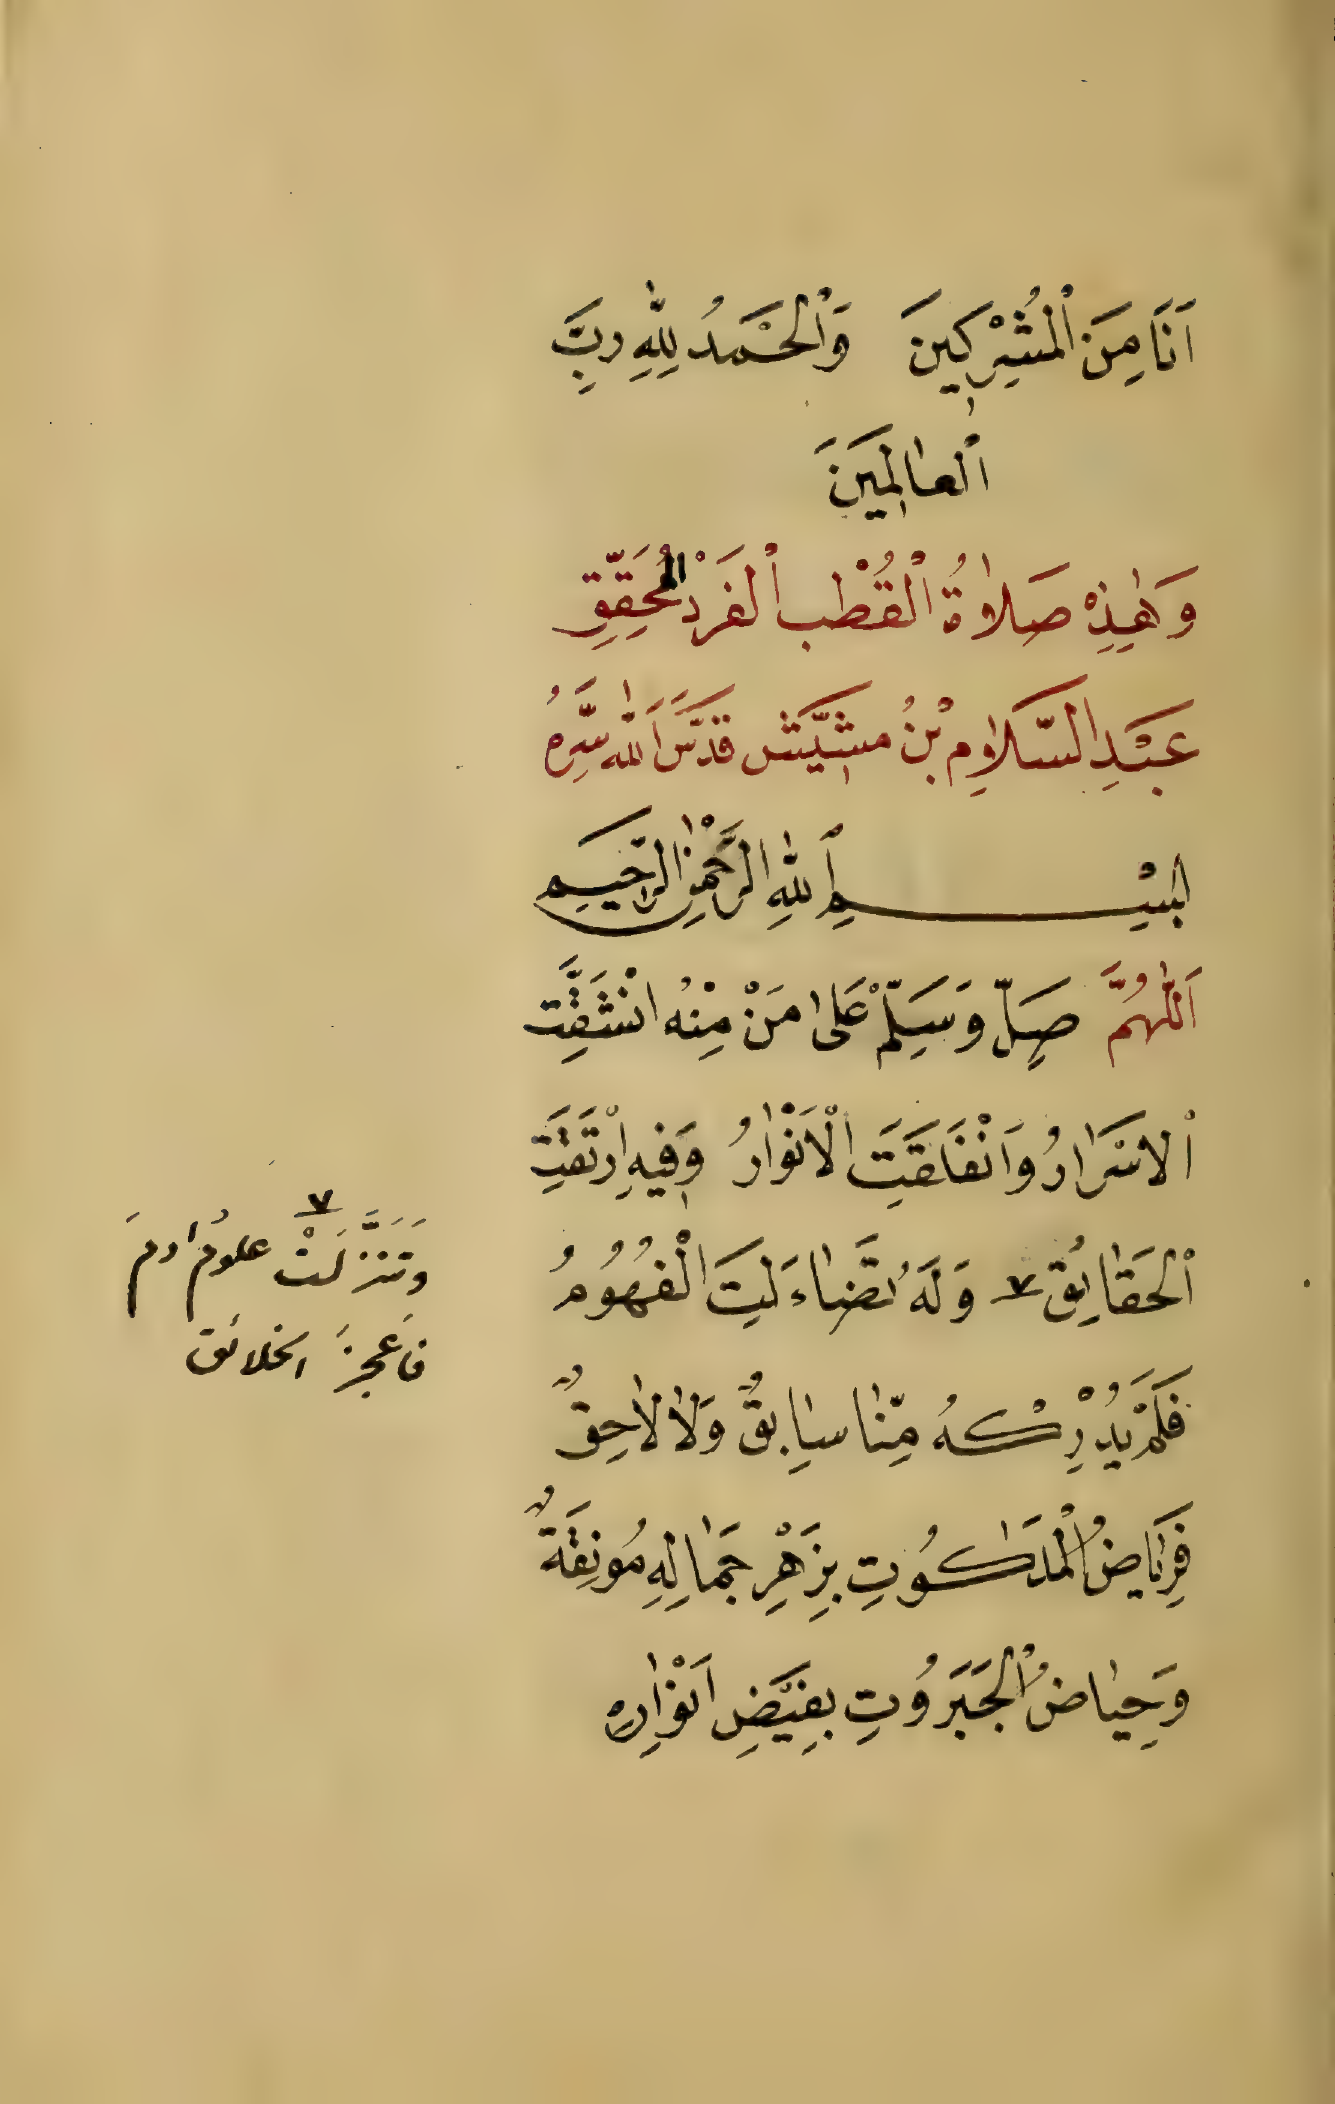 اَنَا مِنَ الْمُشْرِكِينَ وَالْحَمْدُ لِلّٰهِ رَبِّ
الْعٰالَمِينَ
وَهٰذِهْ صَلاٰةُ الْقُطْبِ الْفَرْدِ الْمُحَقِّقِ
عَبْدِ السَّلاٰمِ بْنُ مشِيَّش قَدَّسَ اَللّٰه سِرَّهُ
بِسْمِ اللّٰهِ الرَّحْمٰنِ الرَّحِيمِ
اَللّٰهُمَّ صَلِّ وَسَلِّمْ عَلٰى مَنْ مِنْهُ انْشَقَّتِ
الاَسْرٰارُ وَانْفَلَقَتِ الْاَنْوٰارُ وَفِيهِ ارْتَقَتِ
الْحَقٰايِقُ ٧ وَلَهُ تَضٰاءَلَتِ الْفُهُومُ
فَلَمْ يُدْرِكْهُ مِنّٰا سٰابِقٌ وَلاٰ لاٰحِقٌ
فَرِيٰاضُ الْمَلَكُوتِ بِزَهْرِ جَمٰالِهِ مُونِقَةٌ
وَحِيٰاضُ الْجَبَرُوتِ بِفَيْضِ اَنْوٰارِهِ
وَتَنَزَّلَتْ علومُ ادمَ
فَاَعجزَ الخلائق